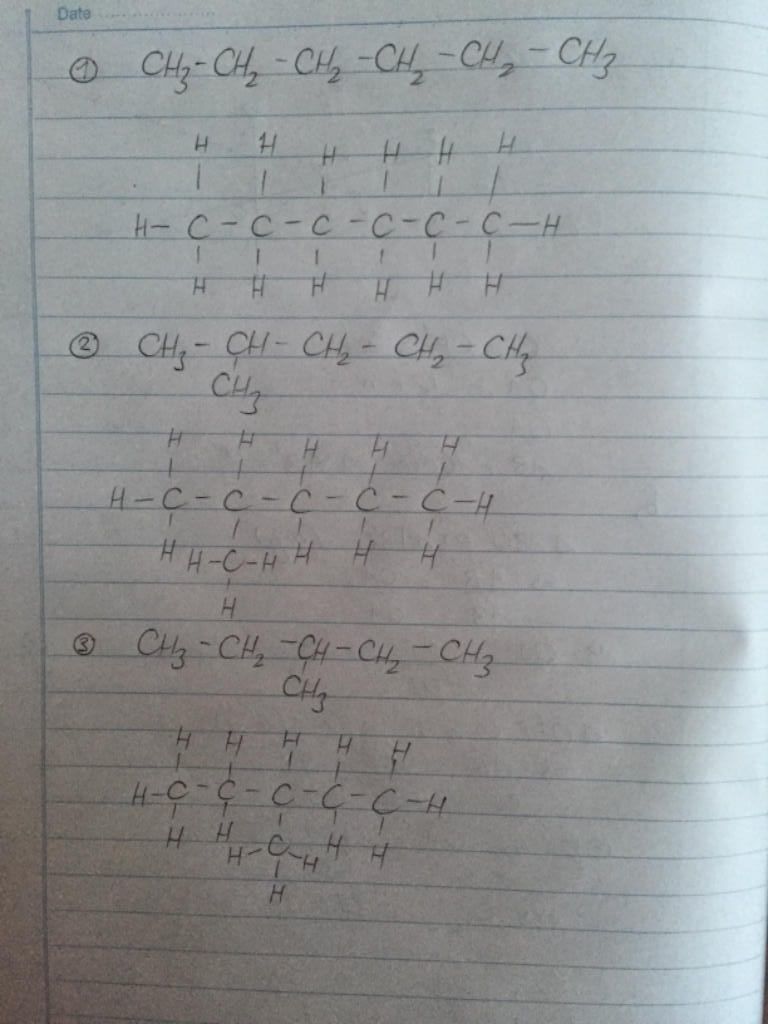 Date
① CH₃-CH₂-CH₂-CH₂-CH₂-CH₃
H H H H H H
| | | | | |
H-C-C-C-C-C-C-H
| | | | | |
H H H H H H
② CH₃-CH-CH₂-CH₂-CH₃
|
CH₃
H H H H H
| | | | |
H-C-C-C-C-C-H
| | | | |
H H-C-H H H H
|
H
③ CH₃-CH₂-CH-CH₂-CH₃
|
CH₃
H H H H H
| | | | |
H-C-C-C-C-C-H
| | | | |
H H H-C-H H H
|
H